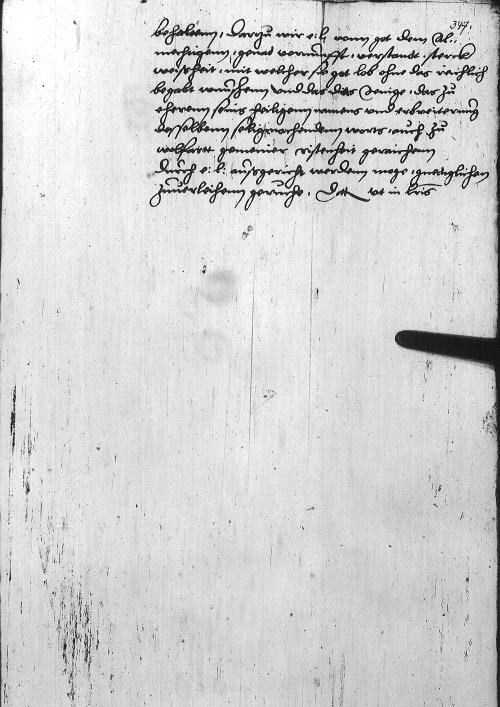 347.
behaltenn, Dartzu wir e: l: vonn got dem Al-
mechtigenn, genad vernunfft, verstandt, sterck
weisheit, mit welcher sie got lob ohne das reichlich
begabt wunschenn, und das das Jenige, das zu
eherenn seins heiligenn namens und erbreiterung
desselbenn seligmachendenn worts, auch zu
wolfartt gemeiner cristenheit gereichenn
durch e: l: ausgericht werdenn moge, gnediglichen
zuuerleihenn geruche, Datt ut in l͞ris